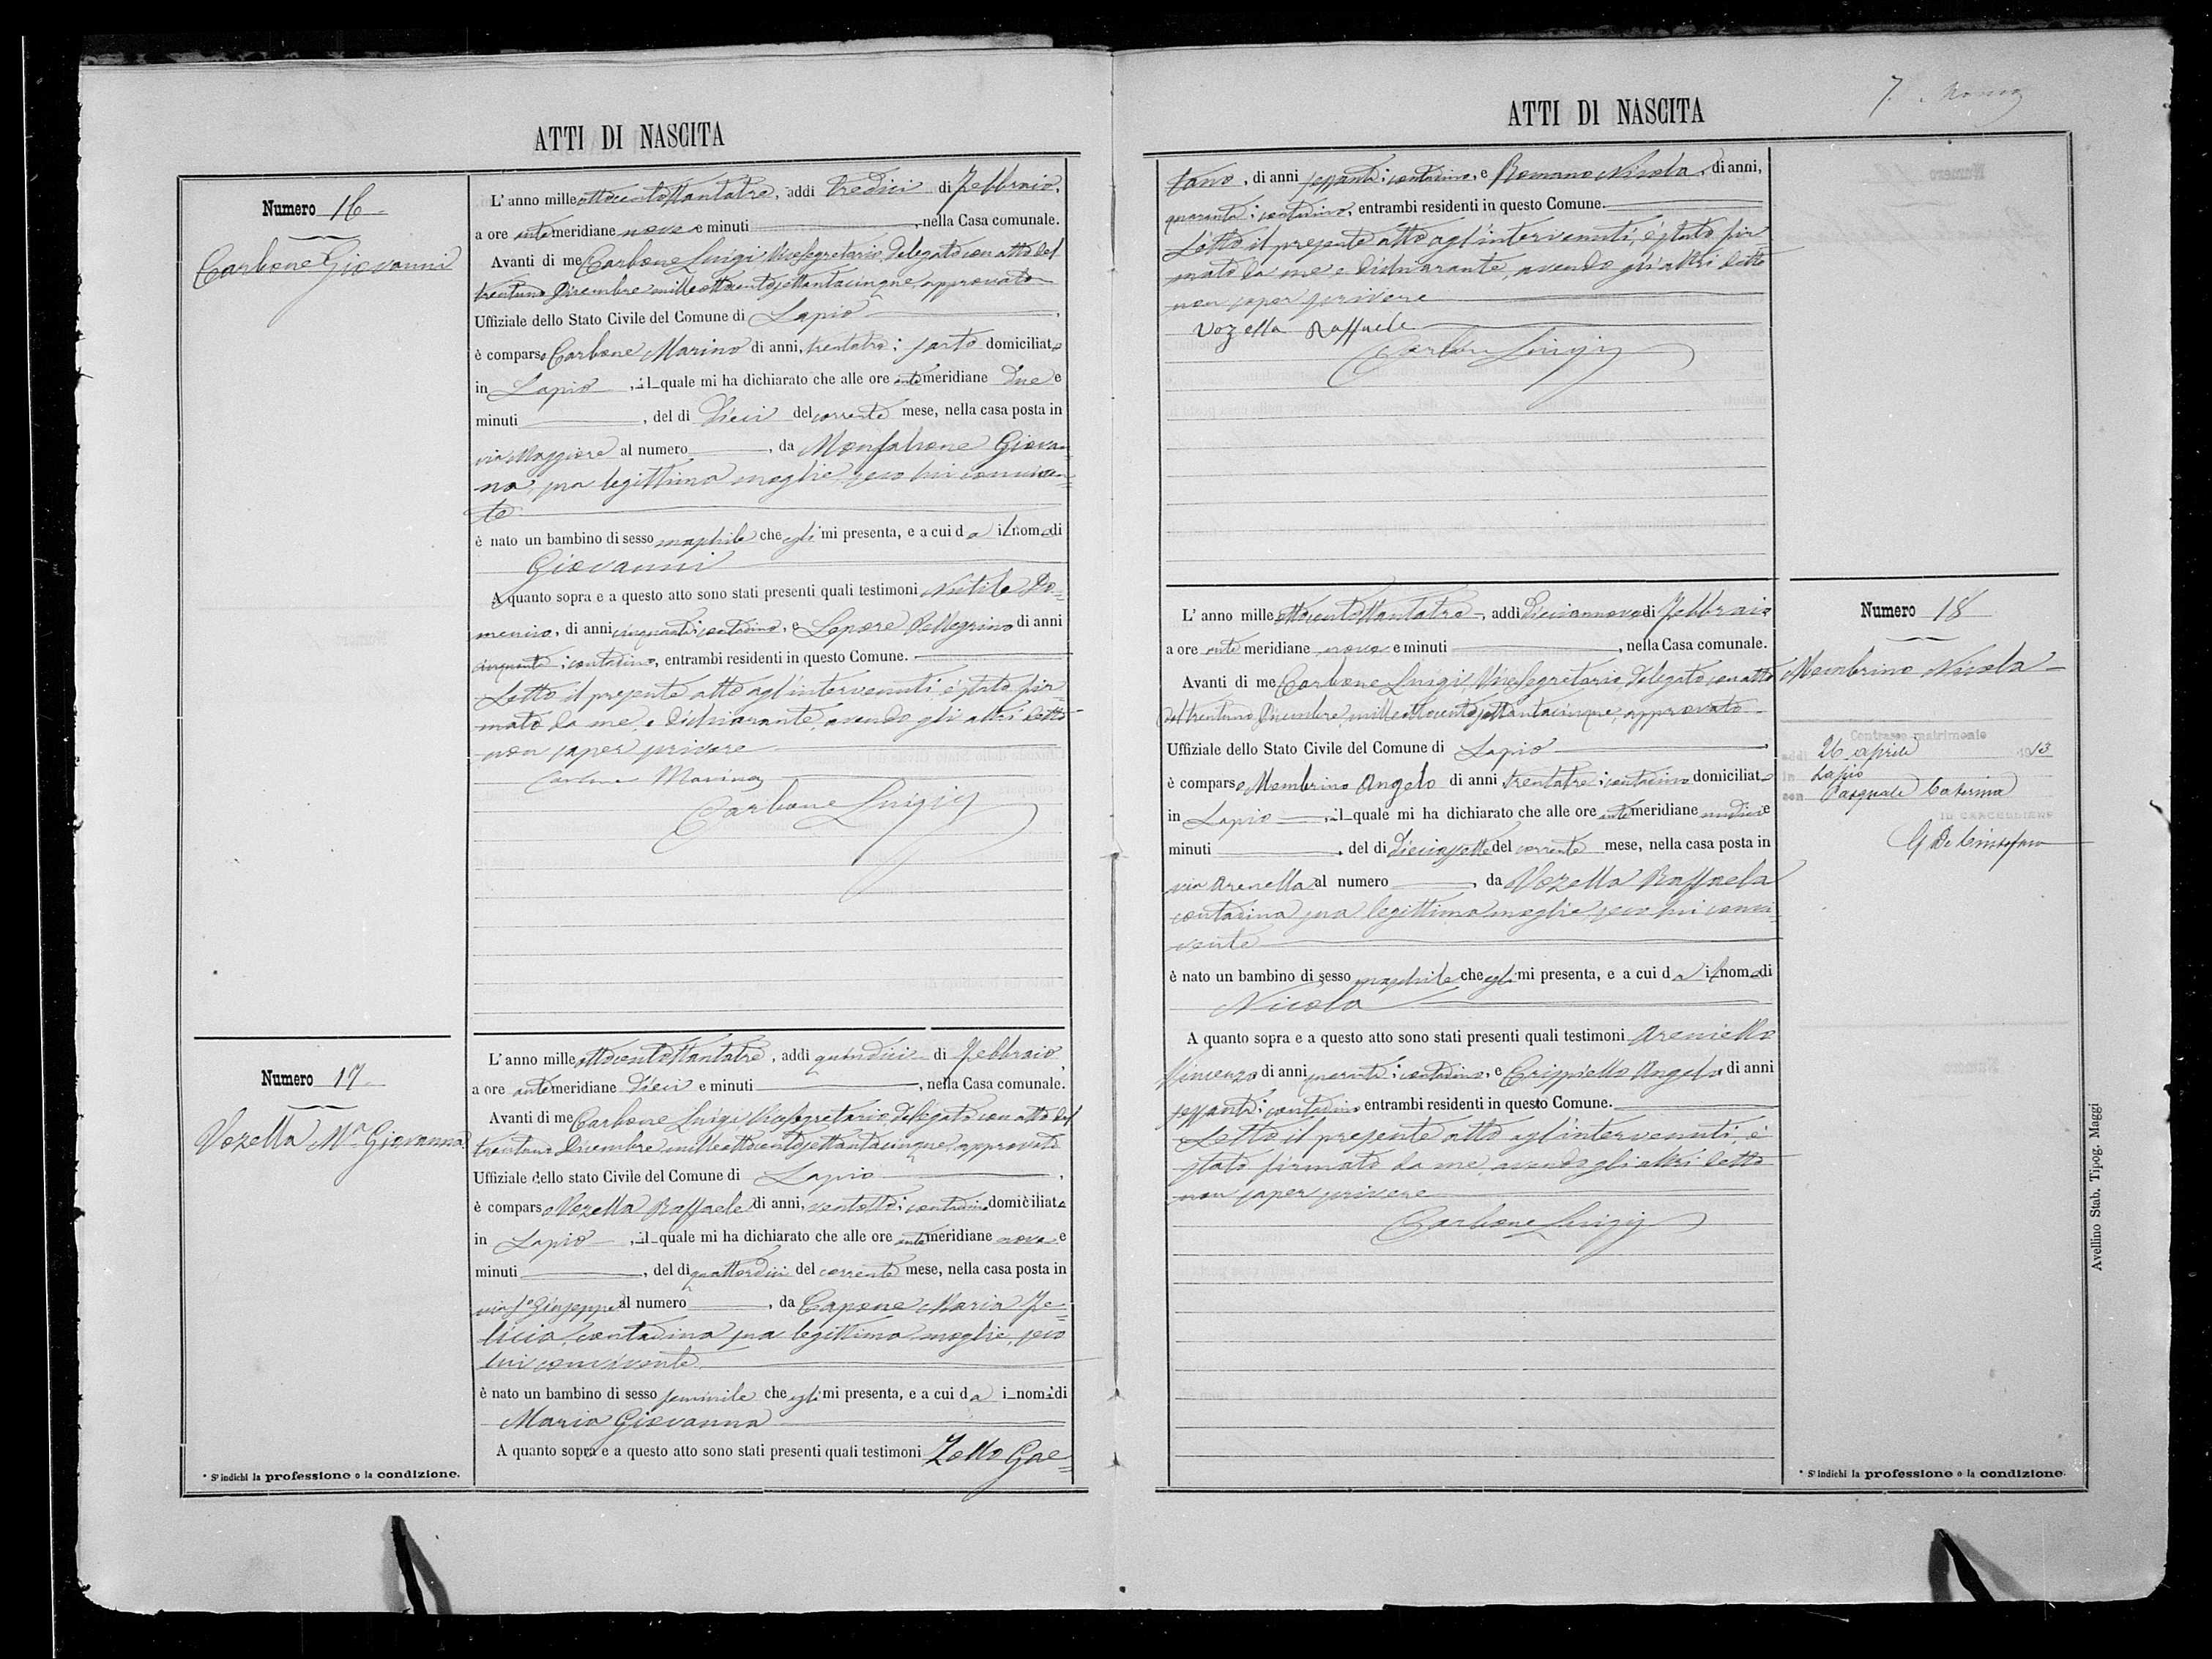 ATTI DI NASCITA
Numero 16
Carbone Giovanni
L' anno mille ottocentottantatre, addi tredici di Febbraio,
a ore ante meridiane nove e minuti , nella Casa comunale.
Avanti di me Carbone Luigi Vicesegretario delegato con atto del
trentuno Dicembre milleottocentosettantacinque approvato
Uffiziale dello Stato Civile del Comune di Lapio
è comparso Carbone Marino di anni, trentatre; sarto domiciliato
in Lapio , il quale mi ha dichiarato che alle ore ante meridiane due e
minuti , del di dieci del corrente mese, nella casa posta in
via Maggiore al numero , da Monfalcone Giovan=
na, sua legittima moglie, seco lui conviven=
te
è nato un bambino di sesso maschile che egli mi presenta, e a cui da il nome di
Giovanni
A quanto sopra e a questo atto sono stati presenti quali testimoni Nutile Do=
menico, di anni cinquanta; contadino, e Lepore Pellegrino di anni
cinquanta; contadino, entrambi residenti in questo Comune.
Letto il presente atto agl'intervenuti, è stato fir
mato da me, e dichiarante, avendo gli altri detto
non saper scrivere
Carbone Marino
Carbone Luigi
Numero 17
Vozella Ma Giovanna
L' anno mille ottocentottantatre, addi quindici di Febbraio,
a ore ante meridiane dieci e minuti , nella Casa comunale.
Avanti di me Carbone Luigi Vicesegretario delegato con atto del
trentuno Dicembre milleottocentosettantacinque, approvato
Uffiziale dello stato Civile del Comune di Lapio
è comparso Vozella Raffaele di anni, ventotto; contadino domiciliato
in Lapio , il quale mi ha dichiarato che alle ore ante meridiane nove e
minuti , del di quattordici del corrente mese, nella casa posta in
via So Giuseppe al numero , da Capone Maria Fe=
licia, contadina sua legittima moglie, seco
lui convivente
è nato un bambino di sesso feminile che egli mi presenta, e a cui da i nomi di
Maria Giovanna
A quanto sopra e a questo atto sono stati presenti quali testimoni Zollo Gae=
* S'indichi la professione o la condizione.
ATTI DI NASCITA
7.
tano, di anni sessanta; contadino, e Romano Nicola, di anni,
quaranta; contadino, entrambi residenti in questo Comune.
Letto il presente atto agl'intervenuti, è stato fir
mato da me e dichiarante, avendo gli altri detto
non saper scrivere
Vozella Raffaele
Carbone Luigi
Numero 18
Membrino Nicola
L' anno mille ottocentottantatre, addi diciannove di Febbraio
a ore ante meridiane nove e minuti , nella Casa comunale.
Avanti di me Carbone Luigi, Vicesegretario delegato, con atto
del trentuno Dicembre milleottocentosettantacinque, approvato
Uffiziale dello Stato Civile del Comune di Lapio
è comparso Membrino Angelo di anni trentatre; contadino domiciliato
in Lapio , il quale mi ha dichiarato che alle ore ante meridiane undici e
minuti , del di diciassette del corrente mese, nella casa posta in
via Arenella al numero , da Vozella Raffaela
contadina sua legittima moglie, seco lui convi=
vente
è nato un bambino di sesso maschile che egli mi presenta, e a cui da il nome di
Nicola
A quanto sopra e a questo atto sono stati presenti quali testimoni Areniello
Vincenzo di anni quaranta; contadino, e Crispiello Angelo di anni
sessanta; contadino entrambi residenti in questo Comune.
Letto il presente atto agl'intervenuti, è
stato firmato da me, avendo gli altri detto
non saper scrivere
Carbone Luigi
Contrasse matrimonio
addi 26 aprile 1913
in Lapio
con Pasquale Caterina
IL CANCELLIERE
* S'indichi la professione o la condizione.
Avellino Stab. Tipog. Maggi